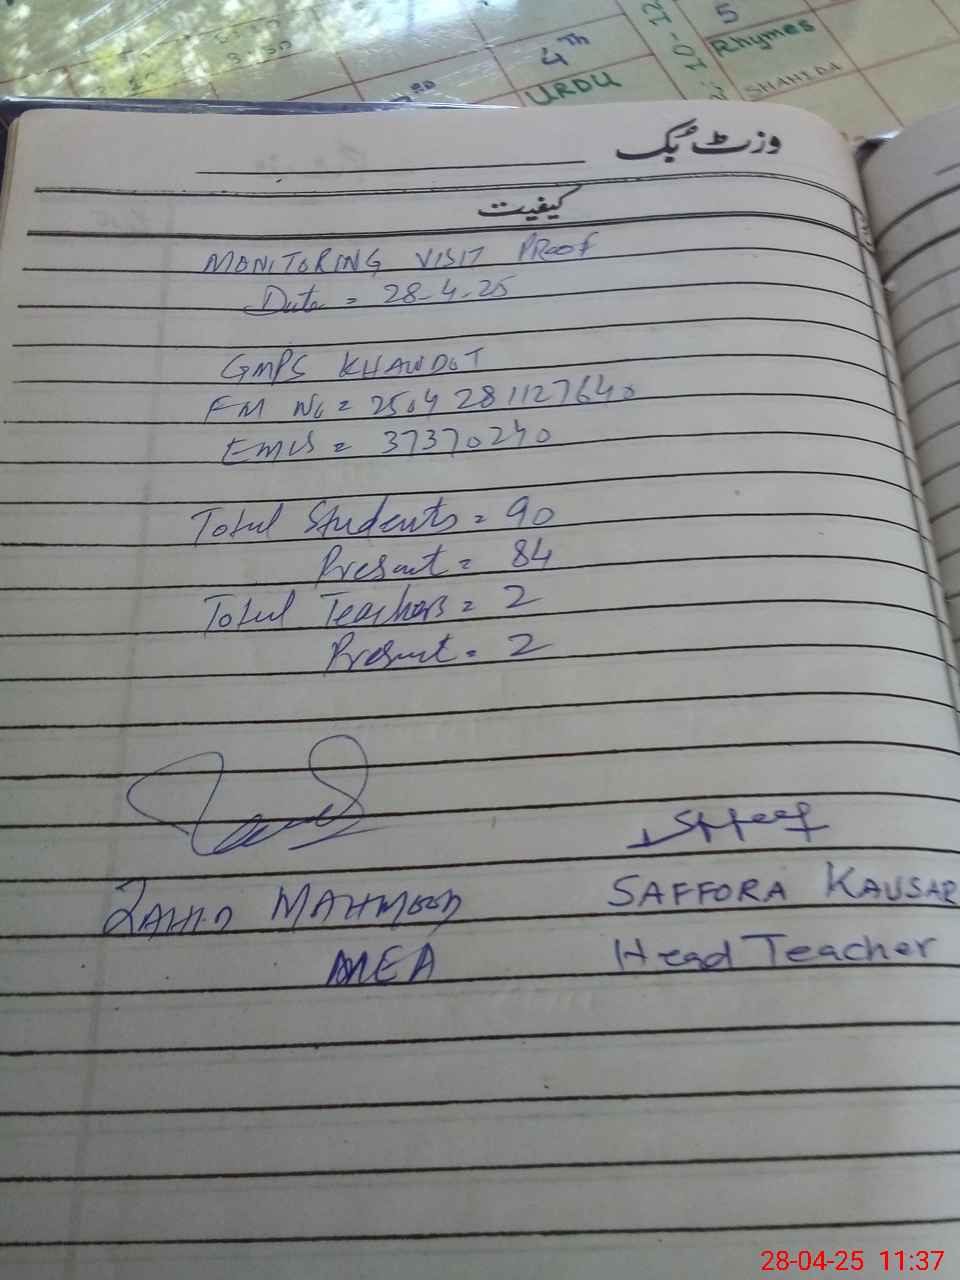 4TH
URDU
5
Rhymes
SHAHEDA
وزٹ بُک
کیفیت
MONITORING VISIT PROOF
Date = 28-4-25
GMPS KHANDOT
FM No = 2504281127640
EMIS = 37370240
Total Students = 90
Present = 84
Total Teachers = 2
Present = 2
ZAHID MAHMOOD SAFFORA KAUSAR
MEA Head Teacher
28-04-25 11:37